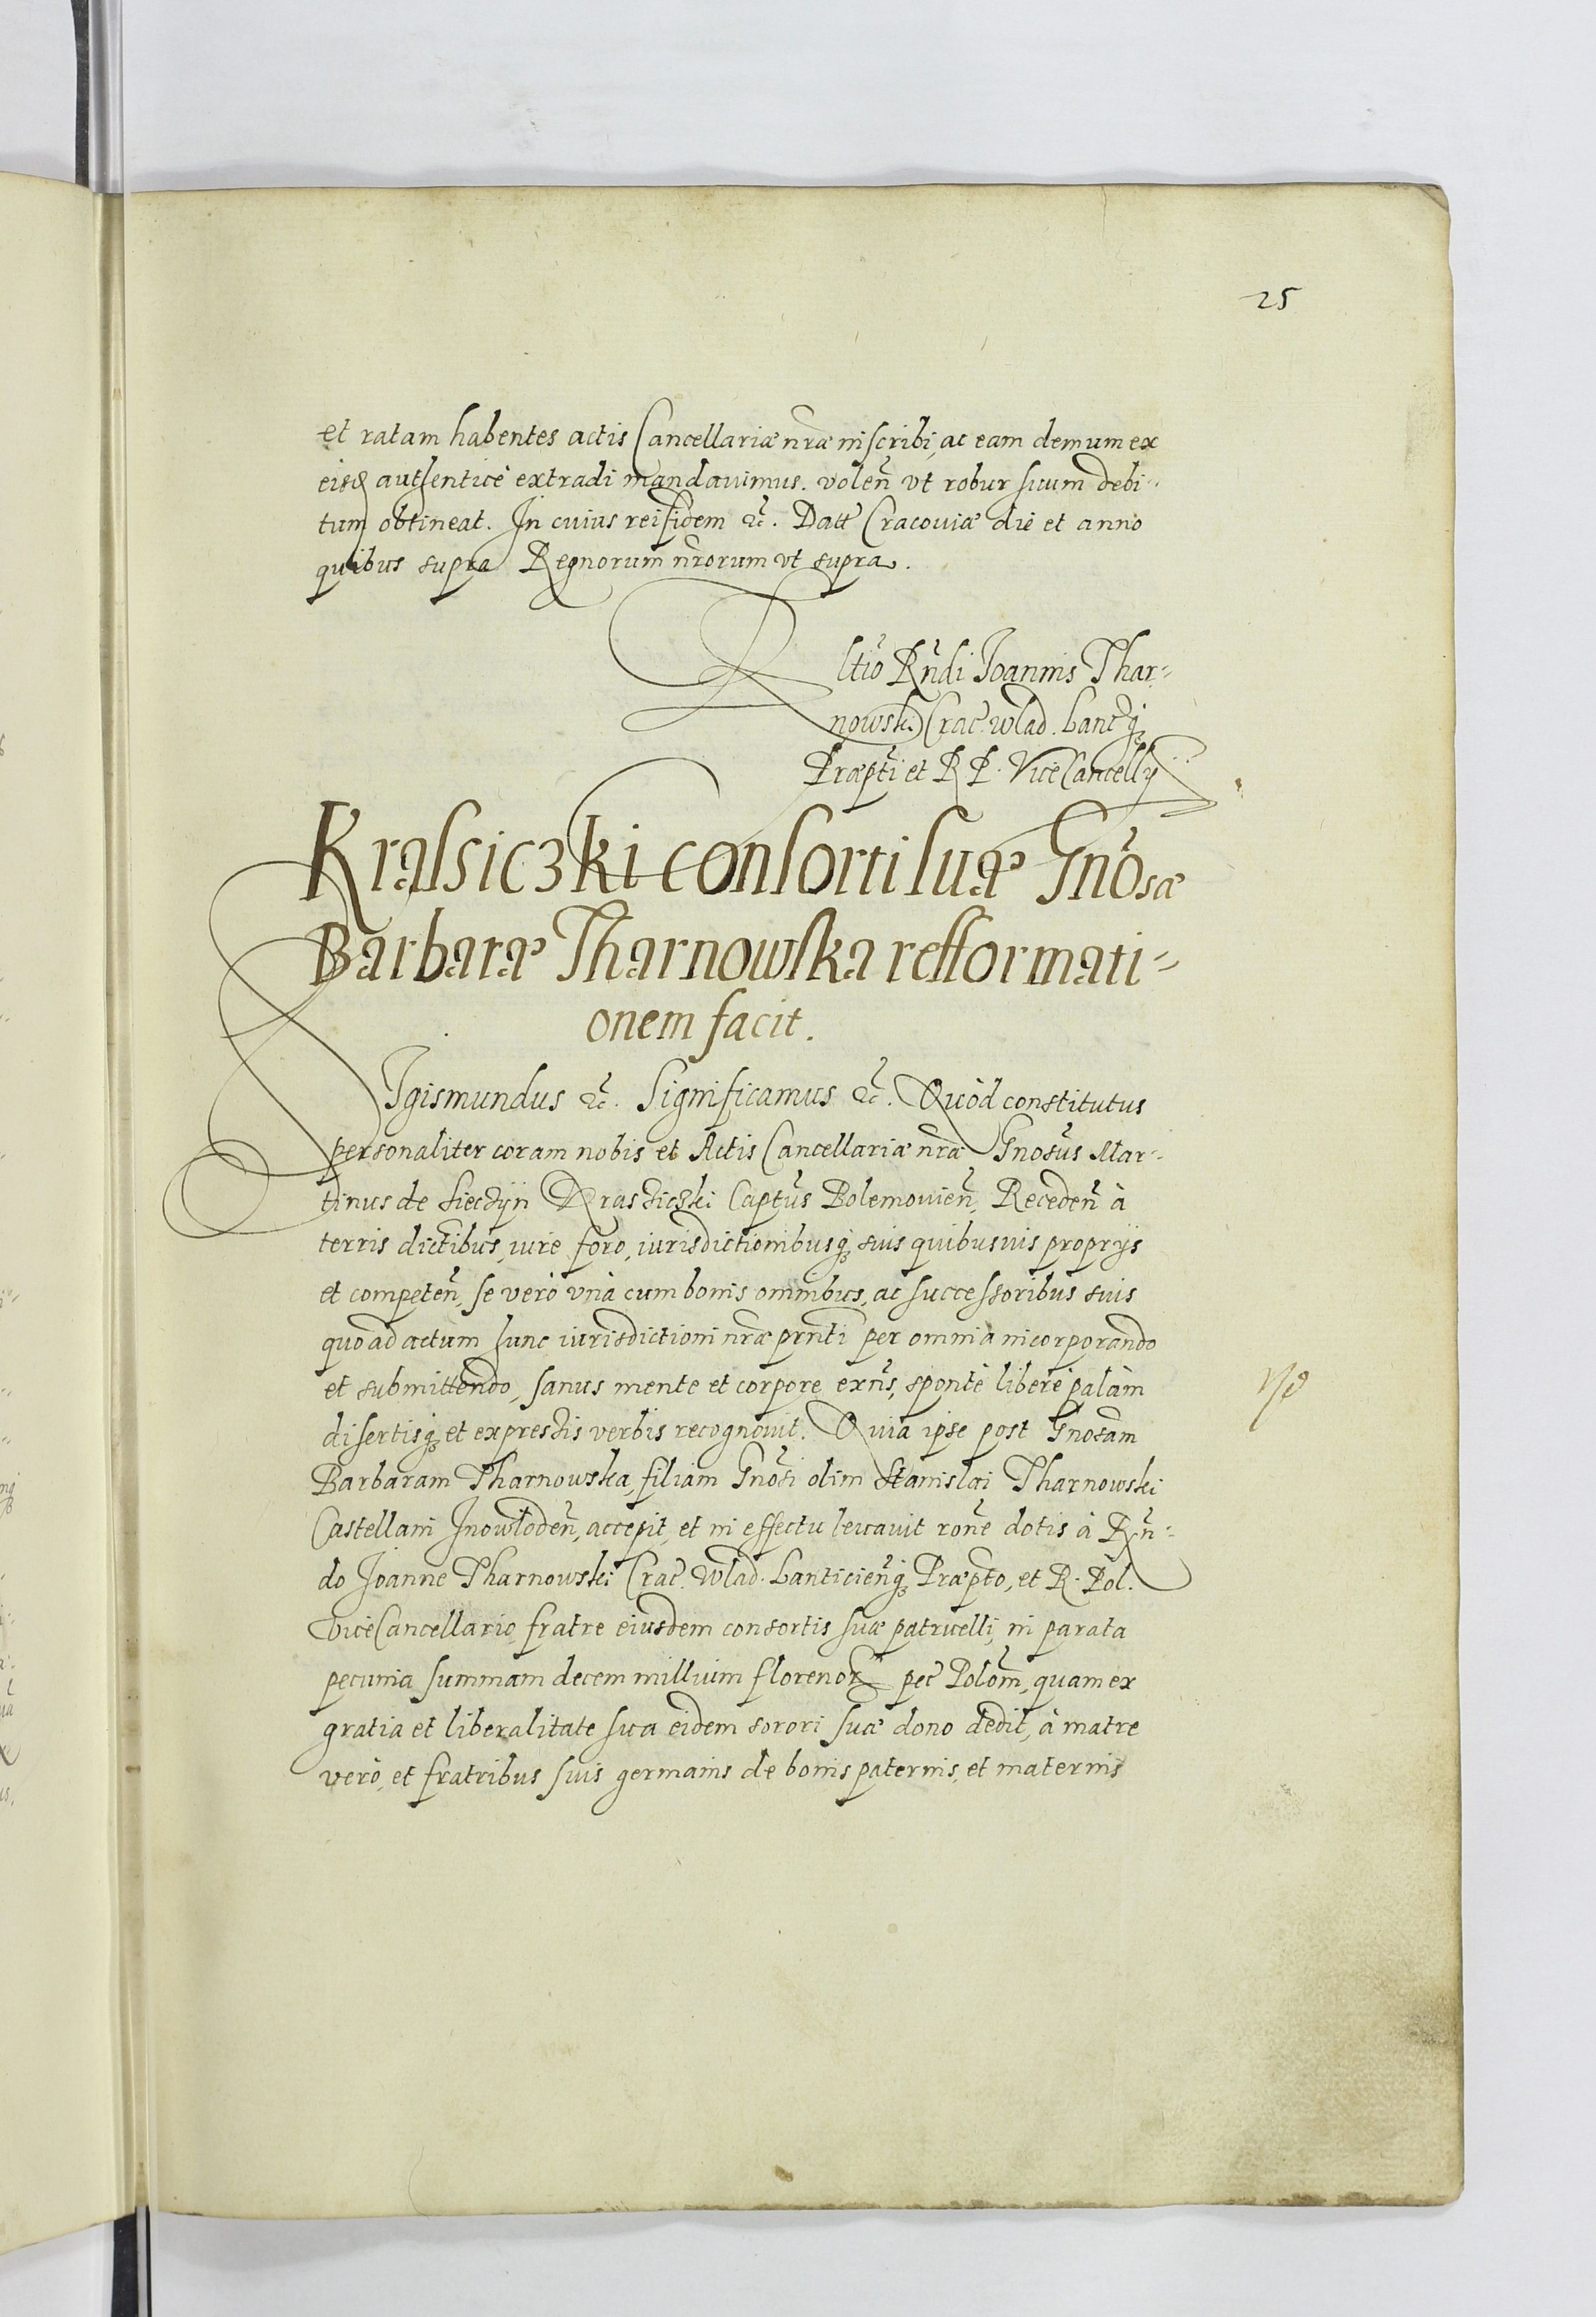 25
et ratam habentes actis Cancellariæ nr̃æ inscribi, ac eam demum ex
eisd authenticè extradi mandavimus. volen̄ vt robur suum debi-
tum obtineat. In cuius rei fidem &c̃. Datt Cracoviæ die et anno
quibus supra Regnorum nr̃orum vt supra.
Rltĩo Rñdi Joannis Thar-
nowski Crac̃. wlad. Lanc̃q;
Præpti et R P. ViceCancellij
Krassiczki consorti suæ Gñosæ
Barbaræ Tharnowska refformati-
onem facit.
SIgismundus &c̃. Significamus &c̃. Quòd constitutus
personaliter coram nobis et Actis Cancellariæ nr̃æ Gnosũs Mar-
tinus de Siecϟijn Krassiczki Captũs Bolemovien̄, Receden̄ à
terris dictibus, iure foro, iurisdictionibusq; suis quibusuis proprijs
et competen̄, se verò vnà cum bonis omnibus, ac successoribus suis
quo ad actum hunc iurisdictioni nr̃æ prñti per omnia incorporando
et submittendo, sanus mente et corpore exñs, spontè liberè palàm
disertisq; et expressis verbis recognovit. Quia ipse post Gnosam̃
Barbaram Tharnowska, filiam Gnosĩ olim Stanislai Tharnowski
Castellani Inowloden̄, accepit, et in effectu levavit ronẽ dotis à Rñ-
do Joanne Tharnowski Crac̃. Wlad. Lanticien̄q; Præpto, et R. Pol.
ViceCancellario, fratre eiusdem consortis suæ patruelli, in parata
pecunia summam decem millium florenoꝝ pec̃ Polom̃, quam ex
gratia et liberalitate sua eidem sorori suæ dono dedit, à matre
verò, et fratribus suis germanis de bonis paternis, et maternis